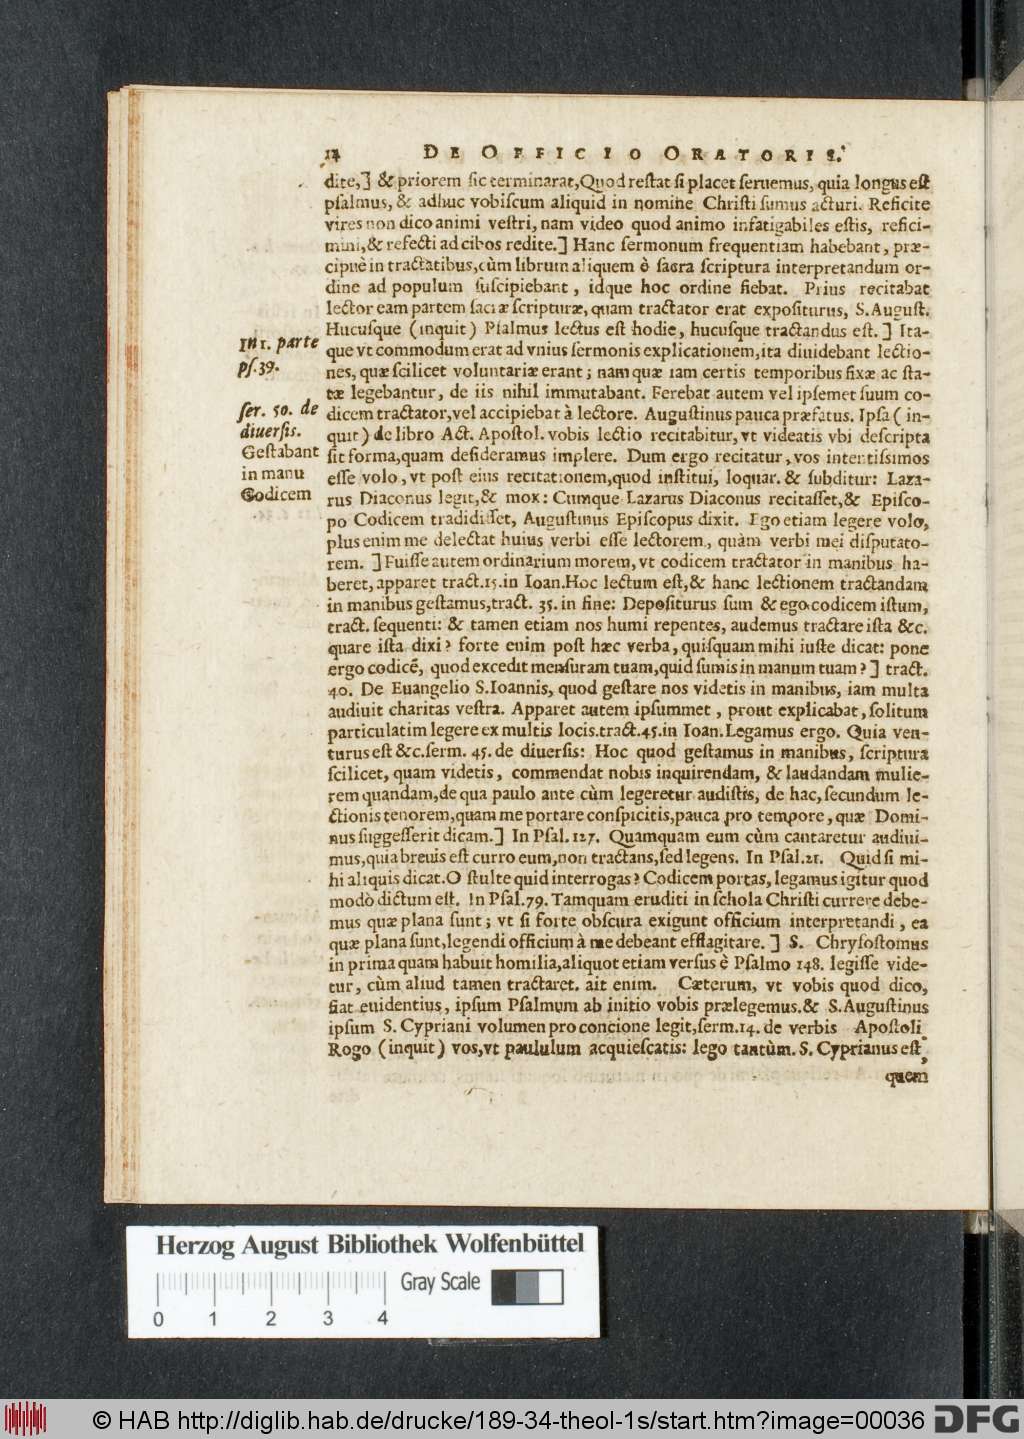 14 DE OFFICIO ORATORIS.
dite,] & priorem ſic terminarat, Quod reſtat ſi placet ſeruemus, quia longus eſt
pſalmus, & adhuc vobiſcum aliquid in nomine Chriſti ſumus acturi. Reficite
vires non dico animi veſtri, nam video quod animo infatigabiles eſtis, refici-
mini, & refecti ad cibos redite.] Hanc ſermonum frequentiam habebant, præ-
cipuè in tractatibus, cùm librum aliquem è ſacra ſcriptura interpretandum or-
dine ad populum ſuſcipiebant, idque hoc ordine fiebat. Prius recitabat
lector eam partem ſacræ ſcripturæ, quam tractator erat expoſiturus, S. Auguſt.
Hucuſque (inquit) Pſalmus lectus eſt hodie, hucuſque tractandus eſt.] Ita-
que vt commodum erat ad vnius ſermonis explicationem, ita diuidebant lectio-
nes, quæ ſcilicet voluntariæ erant; nam quæ iam certis temporibus fixæ ac ſta-
tæ legebantur, de iis nihil immutabant. Ferebat autem vel ipſemet ſuum co-
dicem tractator, vel accipiebat à lectore. Auguſtinus pauca præfatus. Ipſa (in-
quit) de libro Act. Apoſtol. vobis lectio recitabitur, vt videatis vbi deſcripta
ſit forma, quam deſideramus implere. Dum ergo recitatur, vos intentiſsimos
eſſe volo, vt poſt eius recitationem, quod inſtitui, loquar. & ſubditur: Laza-
rus Diaconus legit, & mox: Cumque Lazarus Diaconus recitaſſet, & Epiſco-
po Codicem tradidiſſet, Auguſtinus Epiſcopus dixit. Ego etiam legere volo,
plus enim me delectat huius verbi eſſe lectorem, quàm verbi mei diſputato-
rem. ] Fuiſſe autem ordinarium morem, vt codicem tractator in manibus ha-
beret, apparet tract. 15. in Ioan. Hoc lectum eſt, & hanc lectionem tractandam
in manibus geſtamus, tract. 35. in fine: Depoſiturus ſum & ego codicem iſtum,
tract. ſequenti: & tamen etiam nos humi repentes, audemus tractare iſta &c.
quare iſta dixi? forte enim poſt hæc verba, quiſquam mihi iuſte dicat: pone
ergo codicē, quod excedit menſuram tuam, quid ſumis in manum tuam?] tract.
40. De Euangelio S. Ioannis, quod geſtare nos videtis in manibus, iam multa
audiuit charitas veſtra. Apparet autem ipſummet, prout explicabat, ſolitum
particulatim legere ex multis locis. tract. 45. in Ioan. Legamus ergo. Quia ven-
turus eſt &c. ſerm. 45. de diuerſis: Hoc quod geſtamus in manibus, ſcriptura
ſcilicet, quam videtis, commendat nobis inquirendam, & laudandam mulie-
rem quandam, de qua paulo ante cùm legeretur audiſtis, de hac, ſecundum le-
ctionis tenorem, quam me portare conſpicitis, pauca pro tempore, quæ Domi-
nus ſuggeſſerit dicam.] In Pſal. 127. Quamquam eum cùm cantaretur audiui-
mus, quia breuis eſt curro eum, non tractans, ſed legens. In Pſal. 21. Quid ſi mi-
hi aliquis dicat. O ſtulte quid interrogas? Codicem portas, legamus igitur quod
modò dictum eſt. In Pſal. 79. Tamquam eruditi in ſchola Chriſti currere debe-
mus quæ plana ſunt; vt ſi forte obſcura exigunt officium interpretandi, ea
quæ plana ſunt, legendi officium à me debeant efflagitare. ] S. Chryſoſtomus
in prima quam habuit homilia, aliquot etiam verſus è Pſalmo 148. legiſſe vide-
tur, cùm aliud tamen tractaret. ait enim. Cæterum, vt vobis quod dico,
fiat euidentius, ipſum Pſalmum ab initio vobis prælegemus. & S. Auguſtinus
ipſum S. Cypriani volumen pro concione legit, ſerm. 14. de verbis Apoſtoli
Rogo (inquit) vos, vt paululum acquieſcatis: lego tantùm. S. Cyprianus eſt,
quem
In 1. parte
pſ. 39.
ſer. 50. de
diuerſis.
Geſtabant
in manu
Codicem
Herzog August Bibliothek Wolfenbüttel
Gray Scale
0 1 2 3 4
© HAB http://diglib.hab.de/drucke/189-34-theol-1s/start.htm?image=00036
DFG